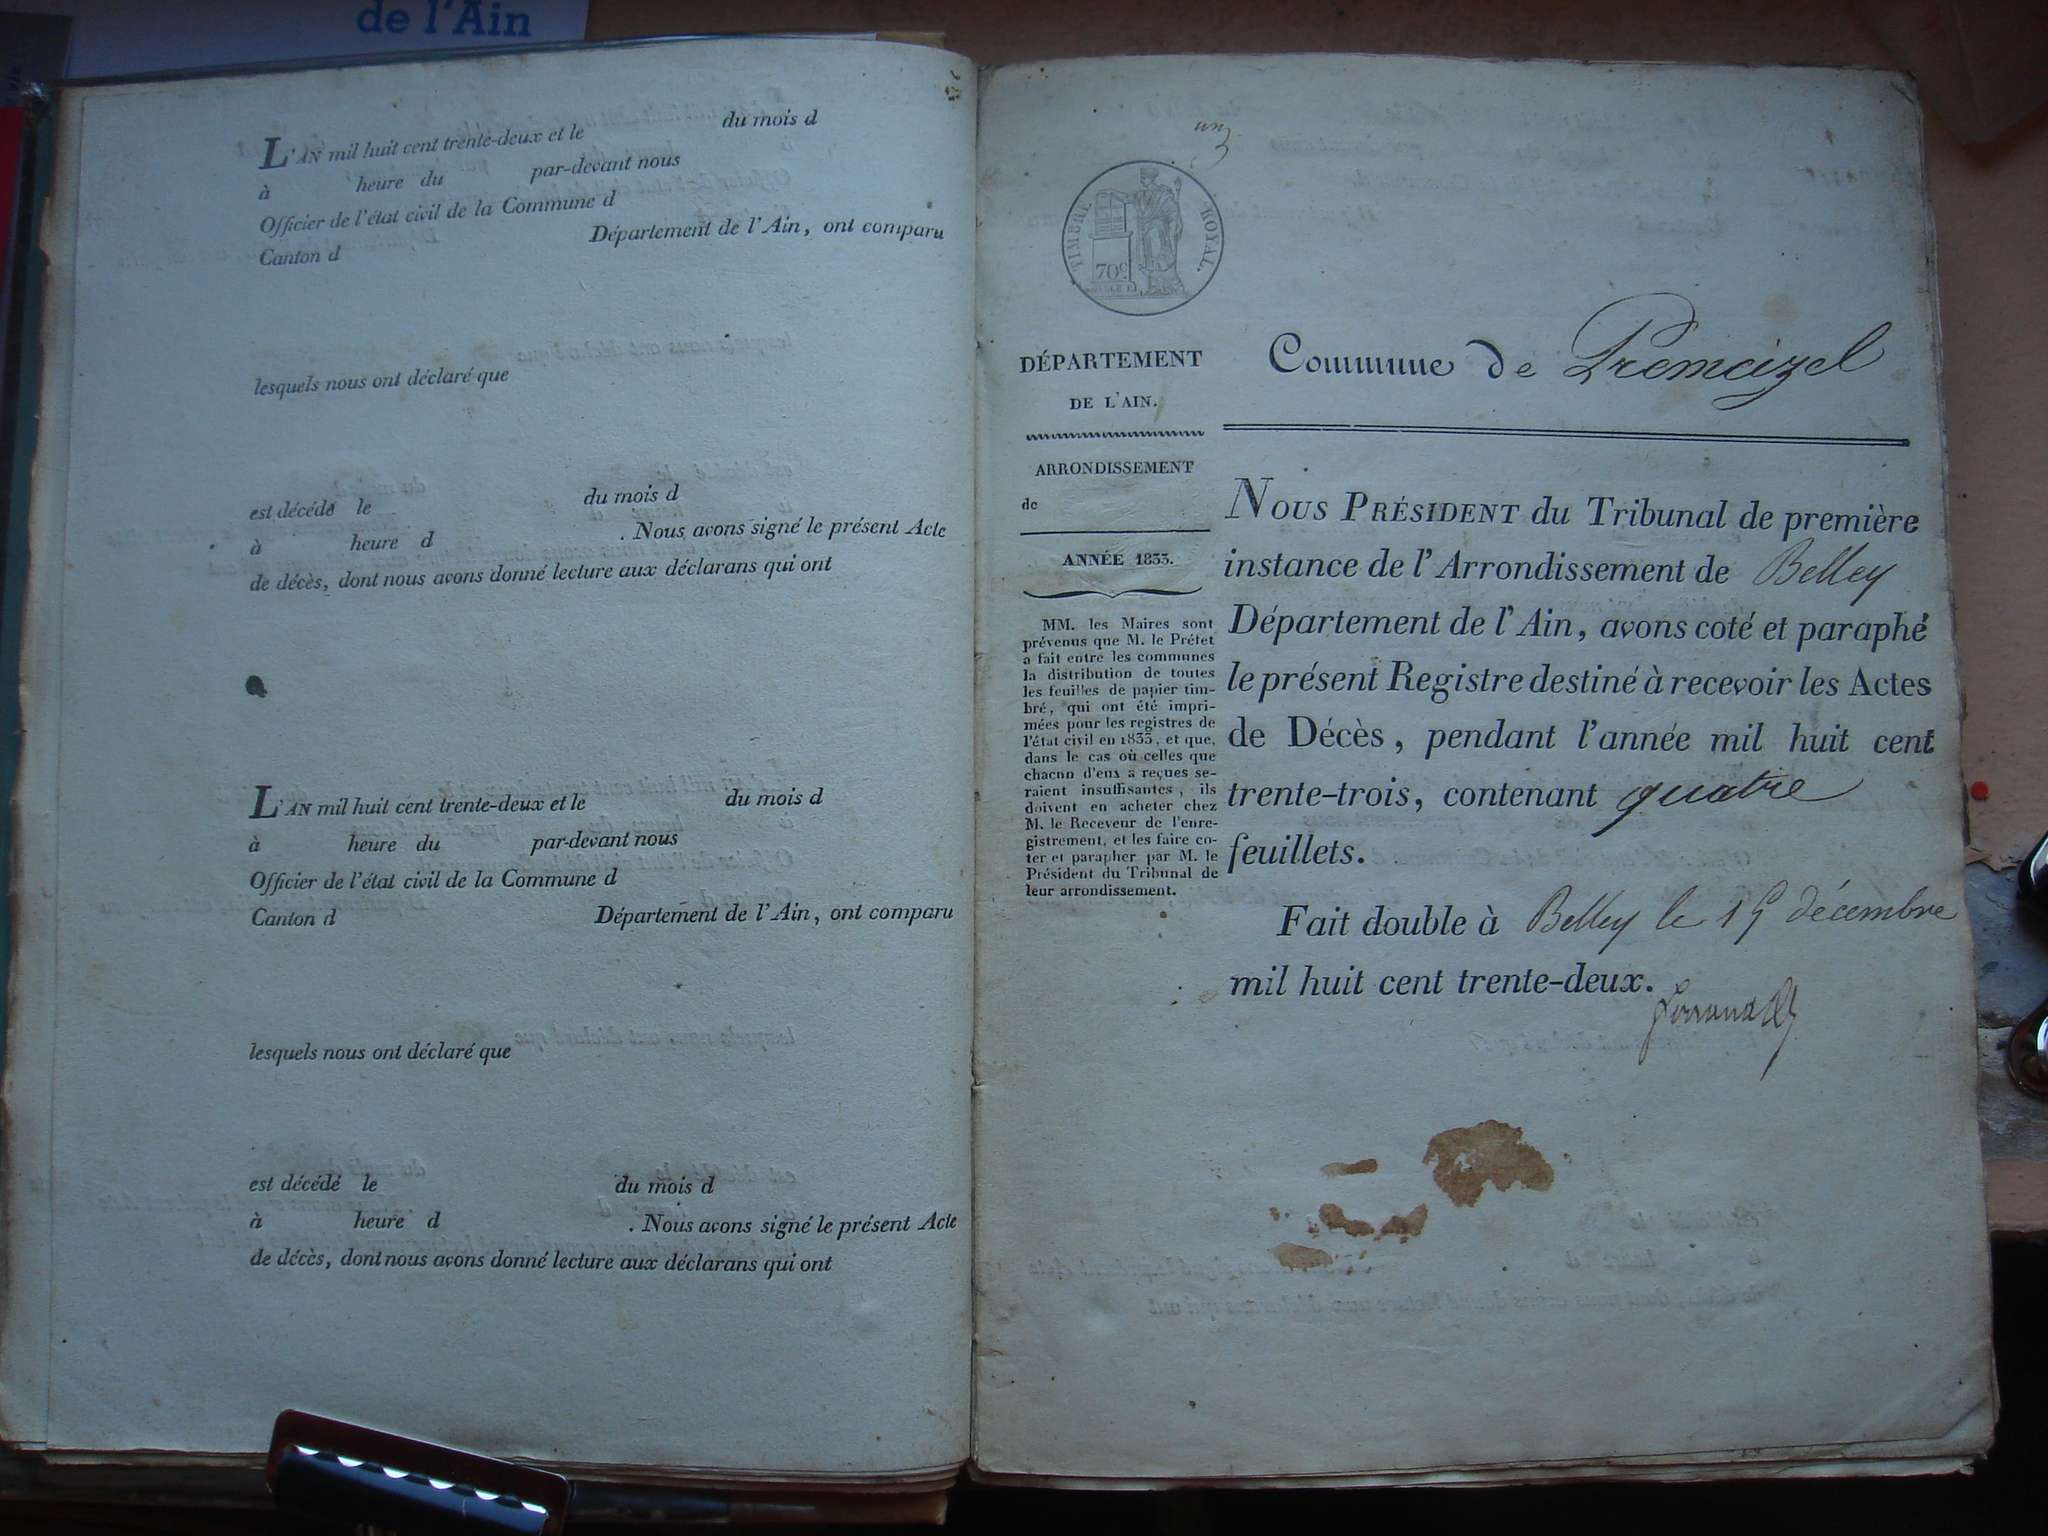 de l'Ain
L'AN mil huit cent trente-deux et le du mois d
à heure du par-devant nous
Officier de l'état civil de la Commune d
Canton d Département de l'Ain, ont comparu
lesquels nous ont déclaré que
est décédé le du mois d
à heure d . Nous avons signé le présent Acte
de décès, dont nous avons donné lecture aux déclarans qui ont
L'AN mil huit cent trente-deux et le du mois d
à heure du par-devant nous
Officier de l'état civil de la Commune d
Canton d Département de l'Ain, ont comparu
lesquels nous ont déclaré que
est décédé le du mois d
à heure d . Nous avons signé le présent Acte
de décès, dont nous avons donné lecture aux déclarans qui ont
TIMBRE ROYAL.
70c
DÉPARTEMENT
DE L'AIN.
ARRONDISSEMENT
de
ANNÉE 1833.
MM. les Maires sont
prévenus que M. le Préfet
a fait entre les communes
la distribution de toutes
les feuilles de papier tim-
bré, qui ont été impri-
mées pour les registres de
l'état civil en 1833, et que,
dans le cas où celles que
chacun d'eux a reçues se-
raient insuffisantes, ils
doivent en acheter chez
M. le Receveur de l'enre-
gistrement, et les faire co-
ter et parapher par M. le
Président du Tribunal de
leur arrondissement.
Commune de Premeizel
NOUS PRÉSIDENT du Tribunal de première
instance de l'Arrondissement de Belley
Département de l'Ain, avons coté et paraphé
le présent Registre destiné à recevoir les Actes
de Décès, pendant l'année mil huit cent
trente-trois, contenant quatre
feuillets.
Fait double à Belley le 15 décembre
mil huit cent trente-deux.